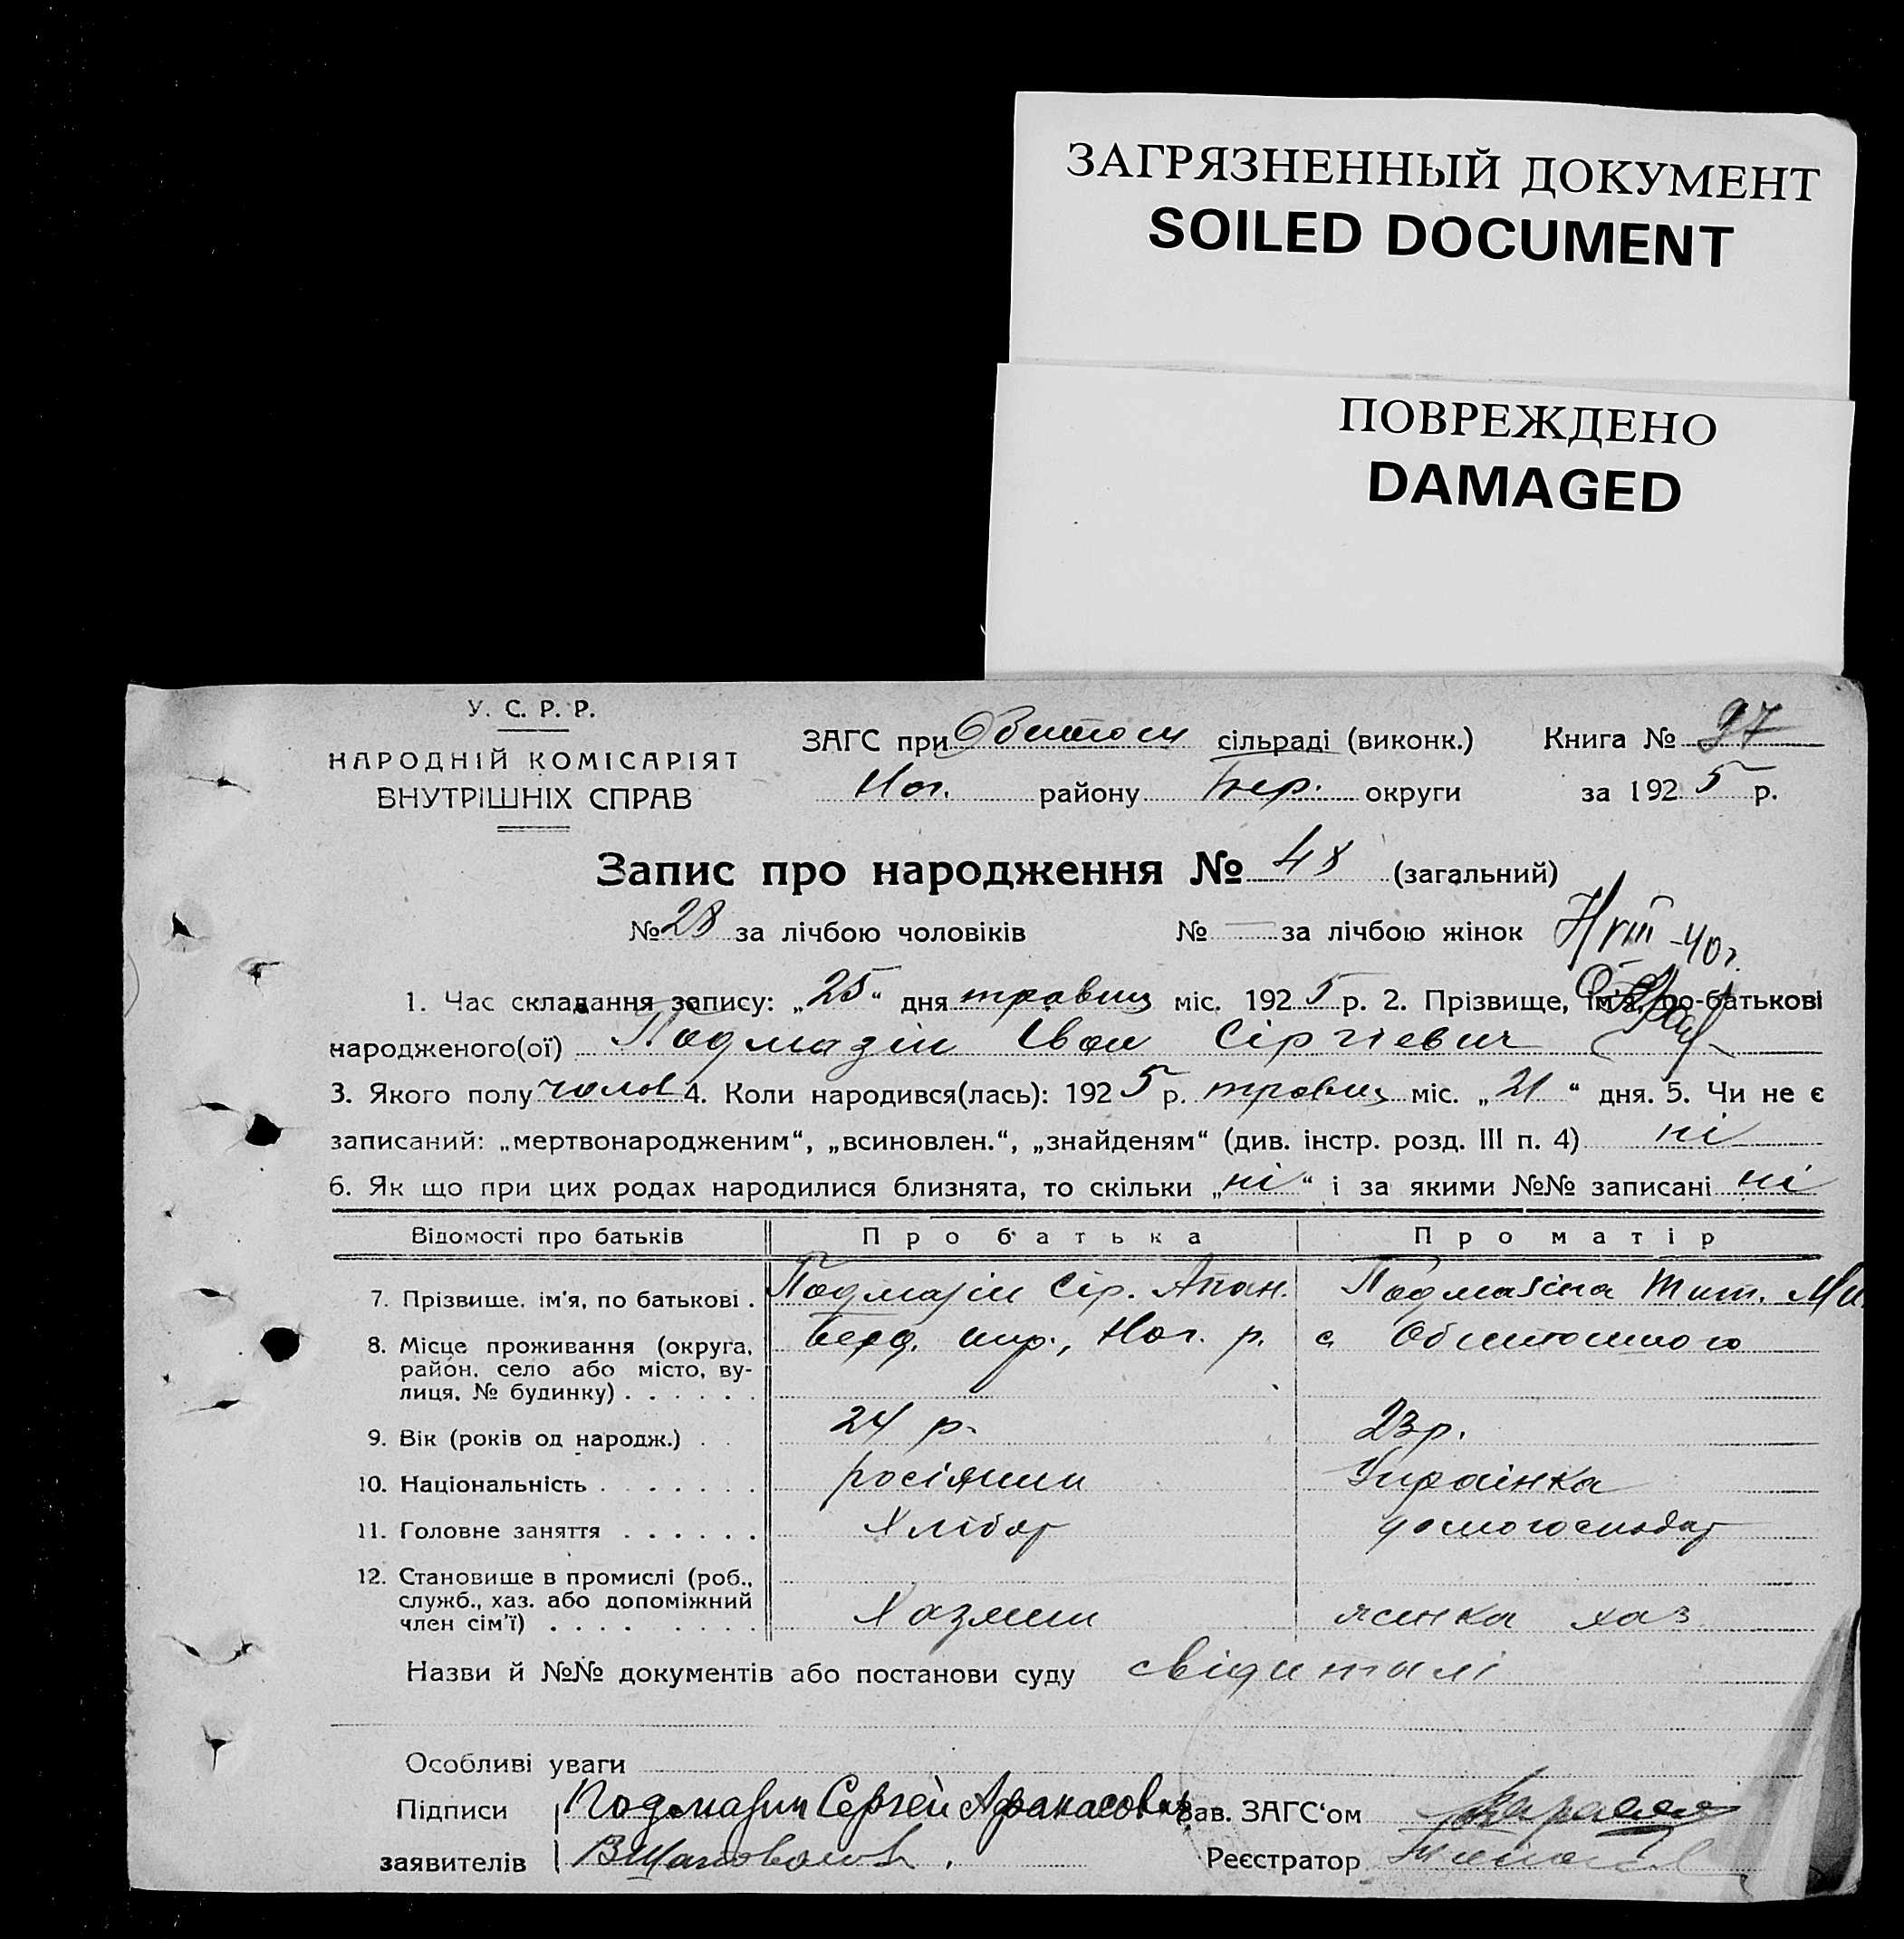 ЗАГРЯЗНЕННЫЙ ДОКУМЕНТ
SOILED DOCUMENT
ПОВРЕЖДЕНО
DAMAGED
У. С. Р. Р.
НАРОДНІЙ КОМІСАРІЯТ
ВНУТРІШНІХ СПРАВ
ЗАГС при сільраді (виконк.) Книга № 97
Ног. району округи за 1925 р.
Запис про народження № 48 (загальний)
№ 28 за лічбою чоловіків № — за лічбою жінок
1. Час складання запису: „25“ дня травня міс. 1925 р. 2. Прізвище, ім'я, по-батькові
народженого(ої) Подмазін Іван Сіргіевич
3. Якого полу чолов 4. Коли народився(лась): 1925 р. травня міс. „21“ дня. 5. Чи не є
записаний: „мертвонародженим“, „всиновлен.“, „знайденям“ (див. інстр. розд. III п. 4) ні
6. Як що при цих родах народилися близнята, то скільки „ні“ і за якими №№ записані ні
Відомості про батьків Про батька Про матір
7. Прізвище, ім'я, по батькові . Подмазін Сір. Апан. Подмазіна
8. Місце проживання (округа, Берд. окр., Ног. р. с. Обиточного
район, село або місто, ву-
лиця, № будинку) . . . . . .
9. Вік (років од народж.) . . 24 р. 23 р.
10. Національність . . . . . . . росіянин Українка
11. Головне заняття . . . . . . Хлібор домогосподар
12. Становище в промислі (роб.,
служб., хаз. або допоміжний
член сім'ї) . . . . . . . . Хазяин жинка хаз
Назви й №№ документів або постанови суду свідитилі
Особливі уваги
Підписи Подмазин Сергей Афанасович Зав. ЗАГС'ом
заявителів Реєстратор